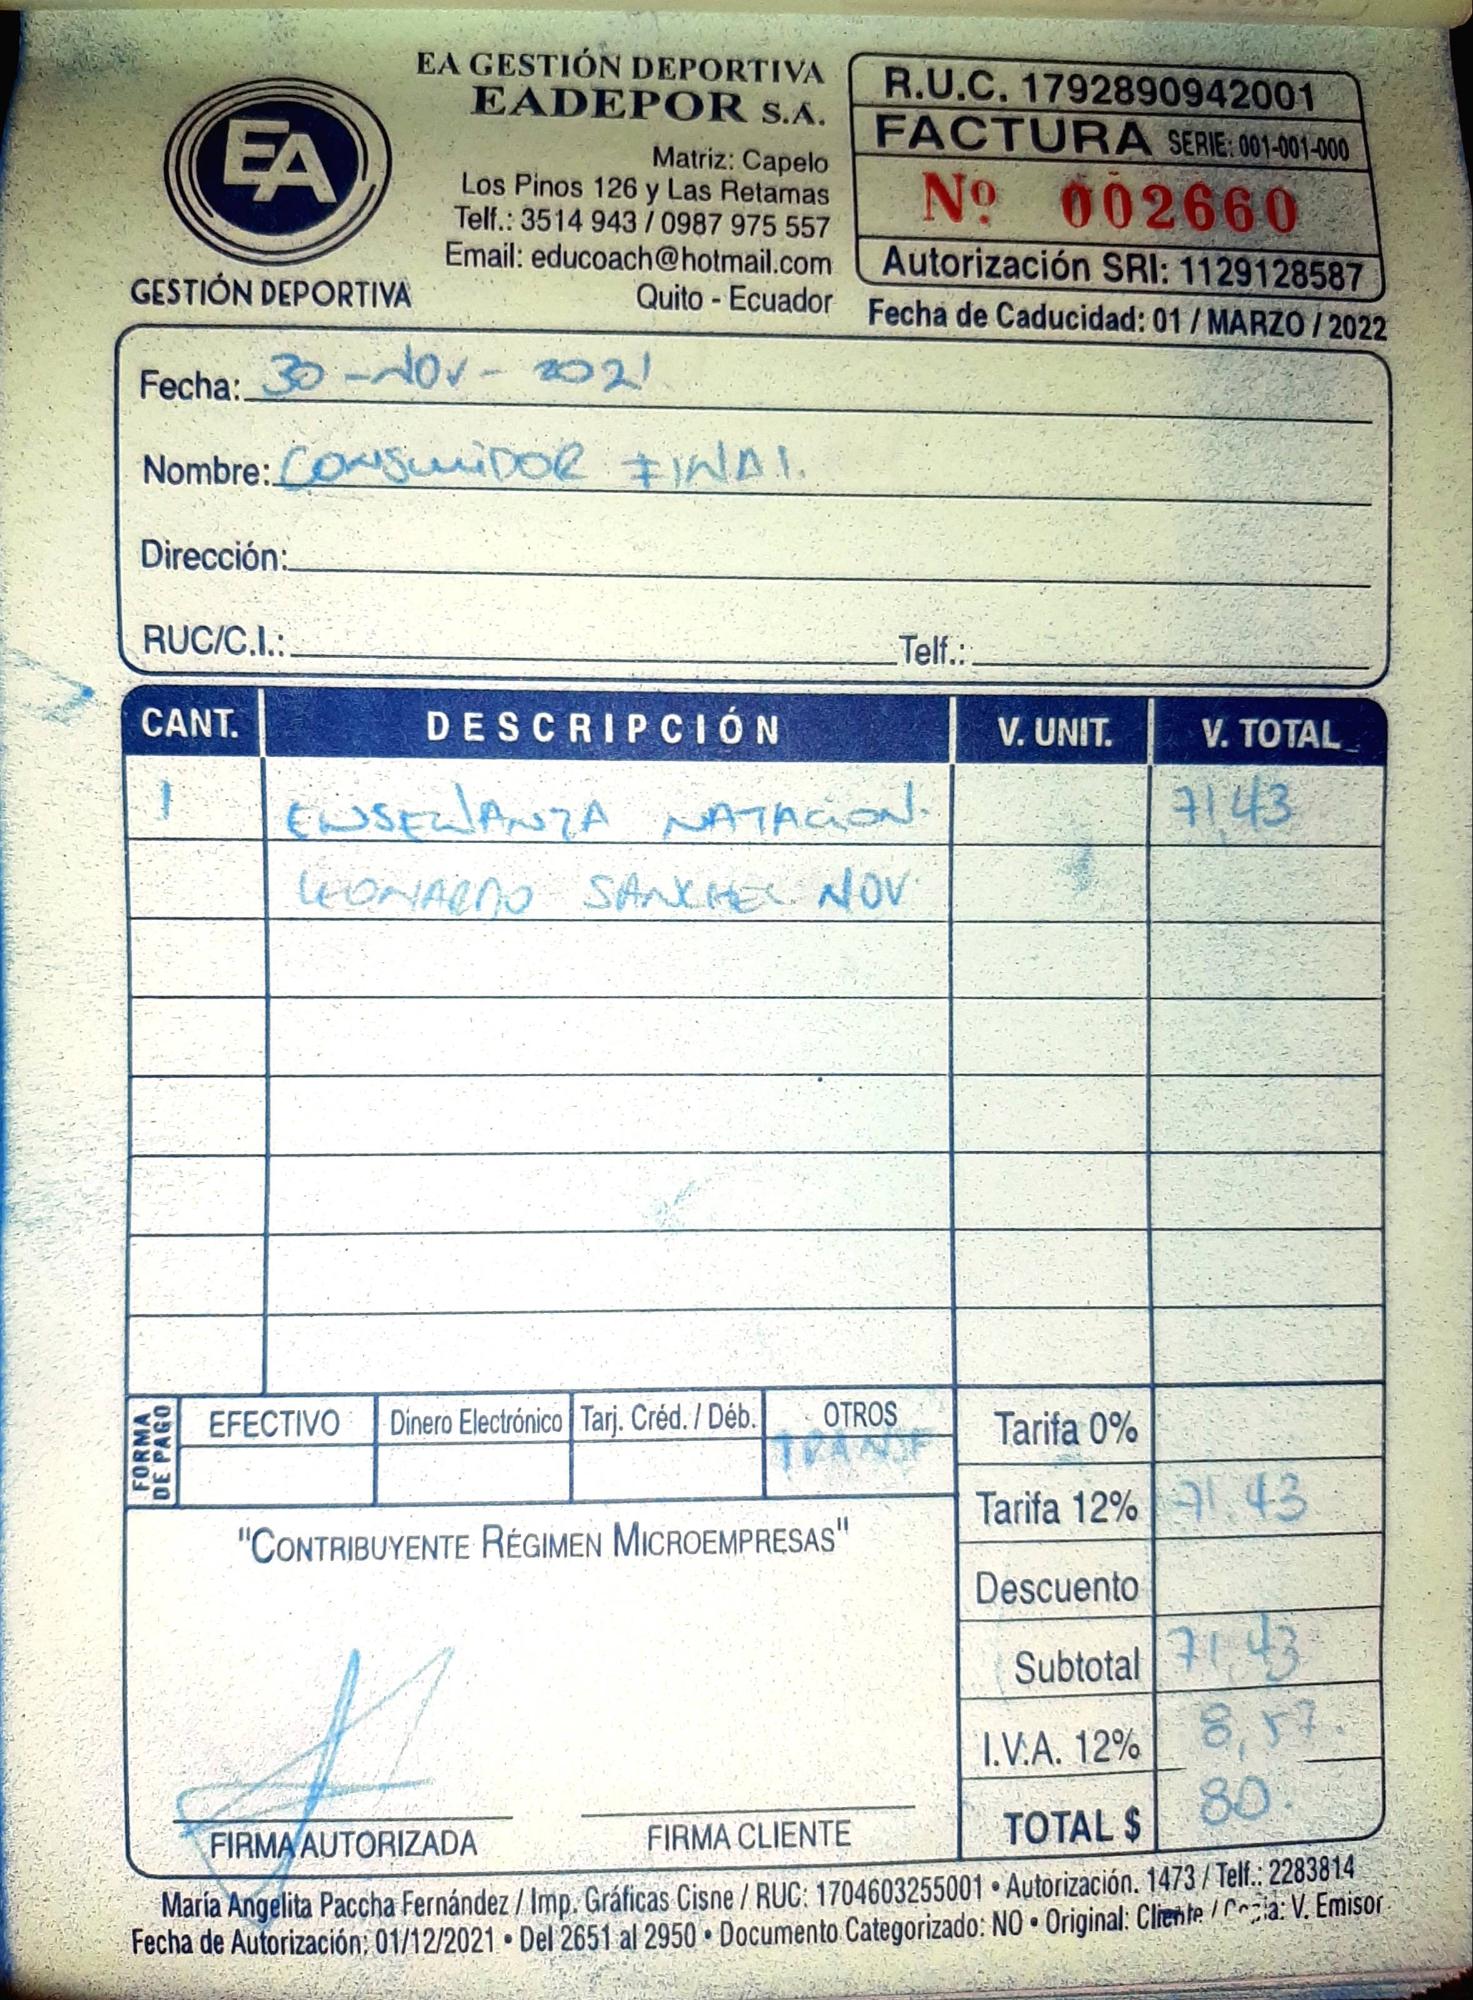 EA
GESTIÓN DEPORTIVA
EA GESTIÓN DEPORTIVA
EADEPOR S.A.
Matriz: Capelo
Los Pinos 126 y Las Retamas
Telf.: 3514 943 / 0987 975 557
Email: educoach@hotmail.com
Quito - Ecuador
R.U.C. 1792890942001
FACTURA SERIE: 001-001-000
Nº 002660
Autorización SRI: 1129128587
Fecha de Caducidad: 01 / MARZO / 2022
Fecha: 30-NOV-2021
Nombre: CONSUMIDOR FINAL.
Dirección:
RUC/C.I.: Telf.:
CANT. DESCRIPCIÓN V. UNIT. V. TOTAL
1 ENSEÑANZA NATACION. 71,43
LEONARDO SANCHEZ NOV.
FORMA DE PAGO
EFECTIVO Dinero Electrónico Tarj. Créd. / Déb. OTROS
TRANSF
Tarifa 0%
Tarifa 12% 71,43
Descuento
Subtotal 71,43
I.V.A. 12% 8,57.
TOTAL $ 80.
"CONTRIBUYENTE RÉGIMEN MICROEMPRESAS"
FIRMA AUTORIZADA FIRMA CLIENTE
María Angelita Paccha Fernández / Imp. Gráficas Cisne / RUC: 1704603255001 • Autorización. 1473 / Telf.: 2283814
Fecha de Autorización: 01/12/2021 • Del 2651 al 2950 • Documento Categorizado: NO • Original: Cliente / Copia: V. Emisor